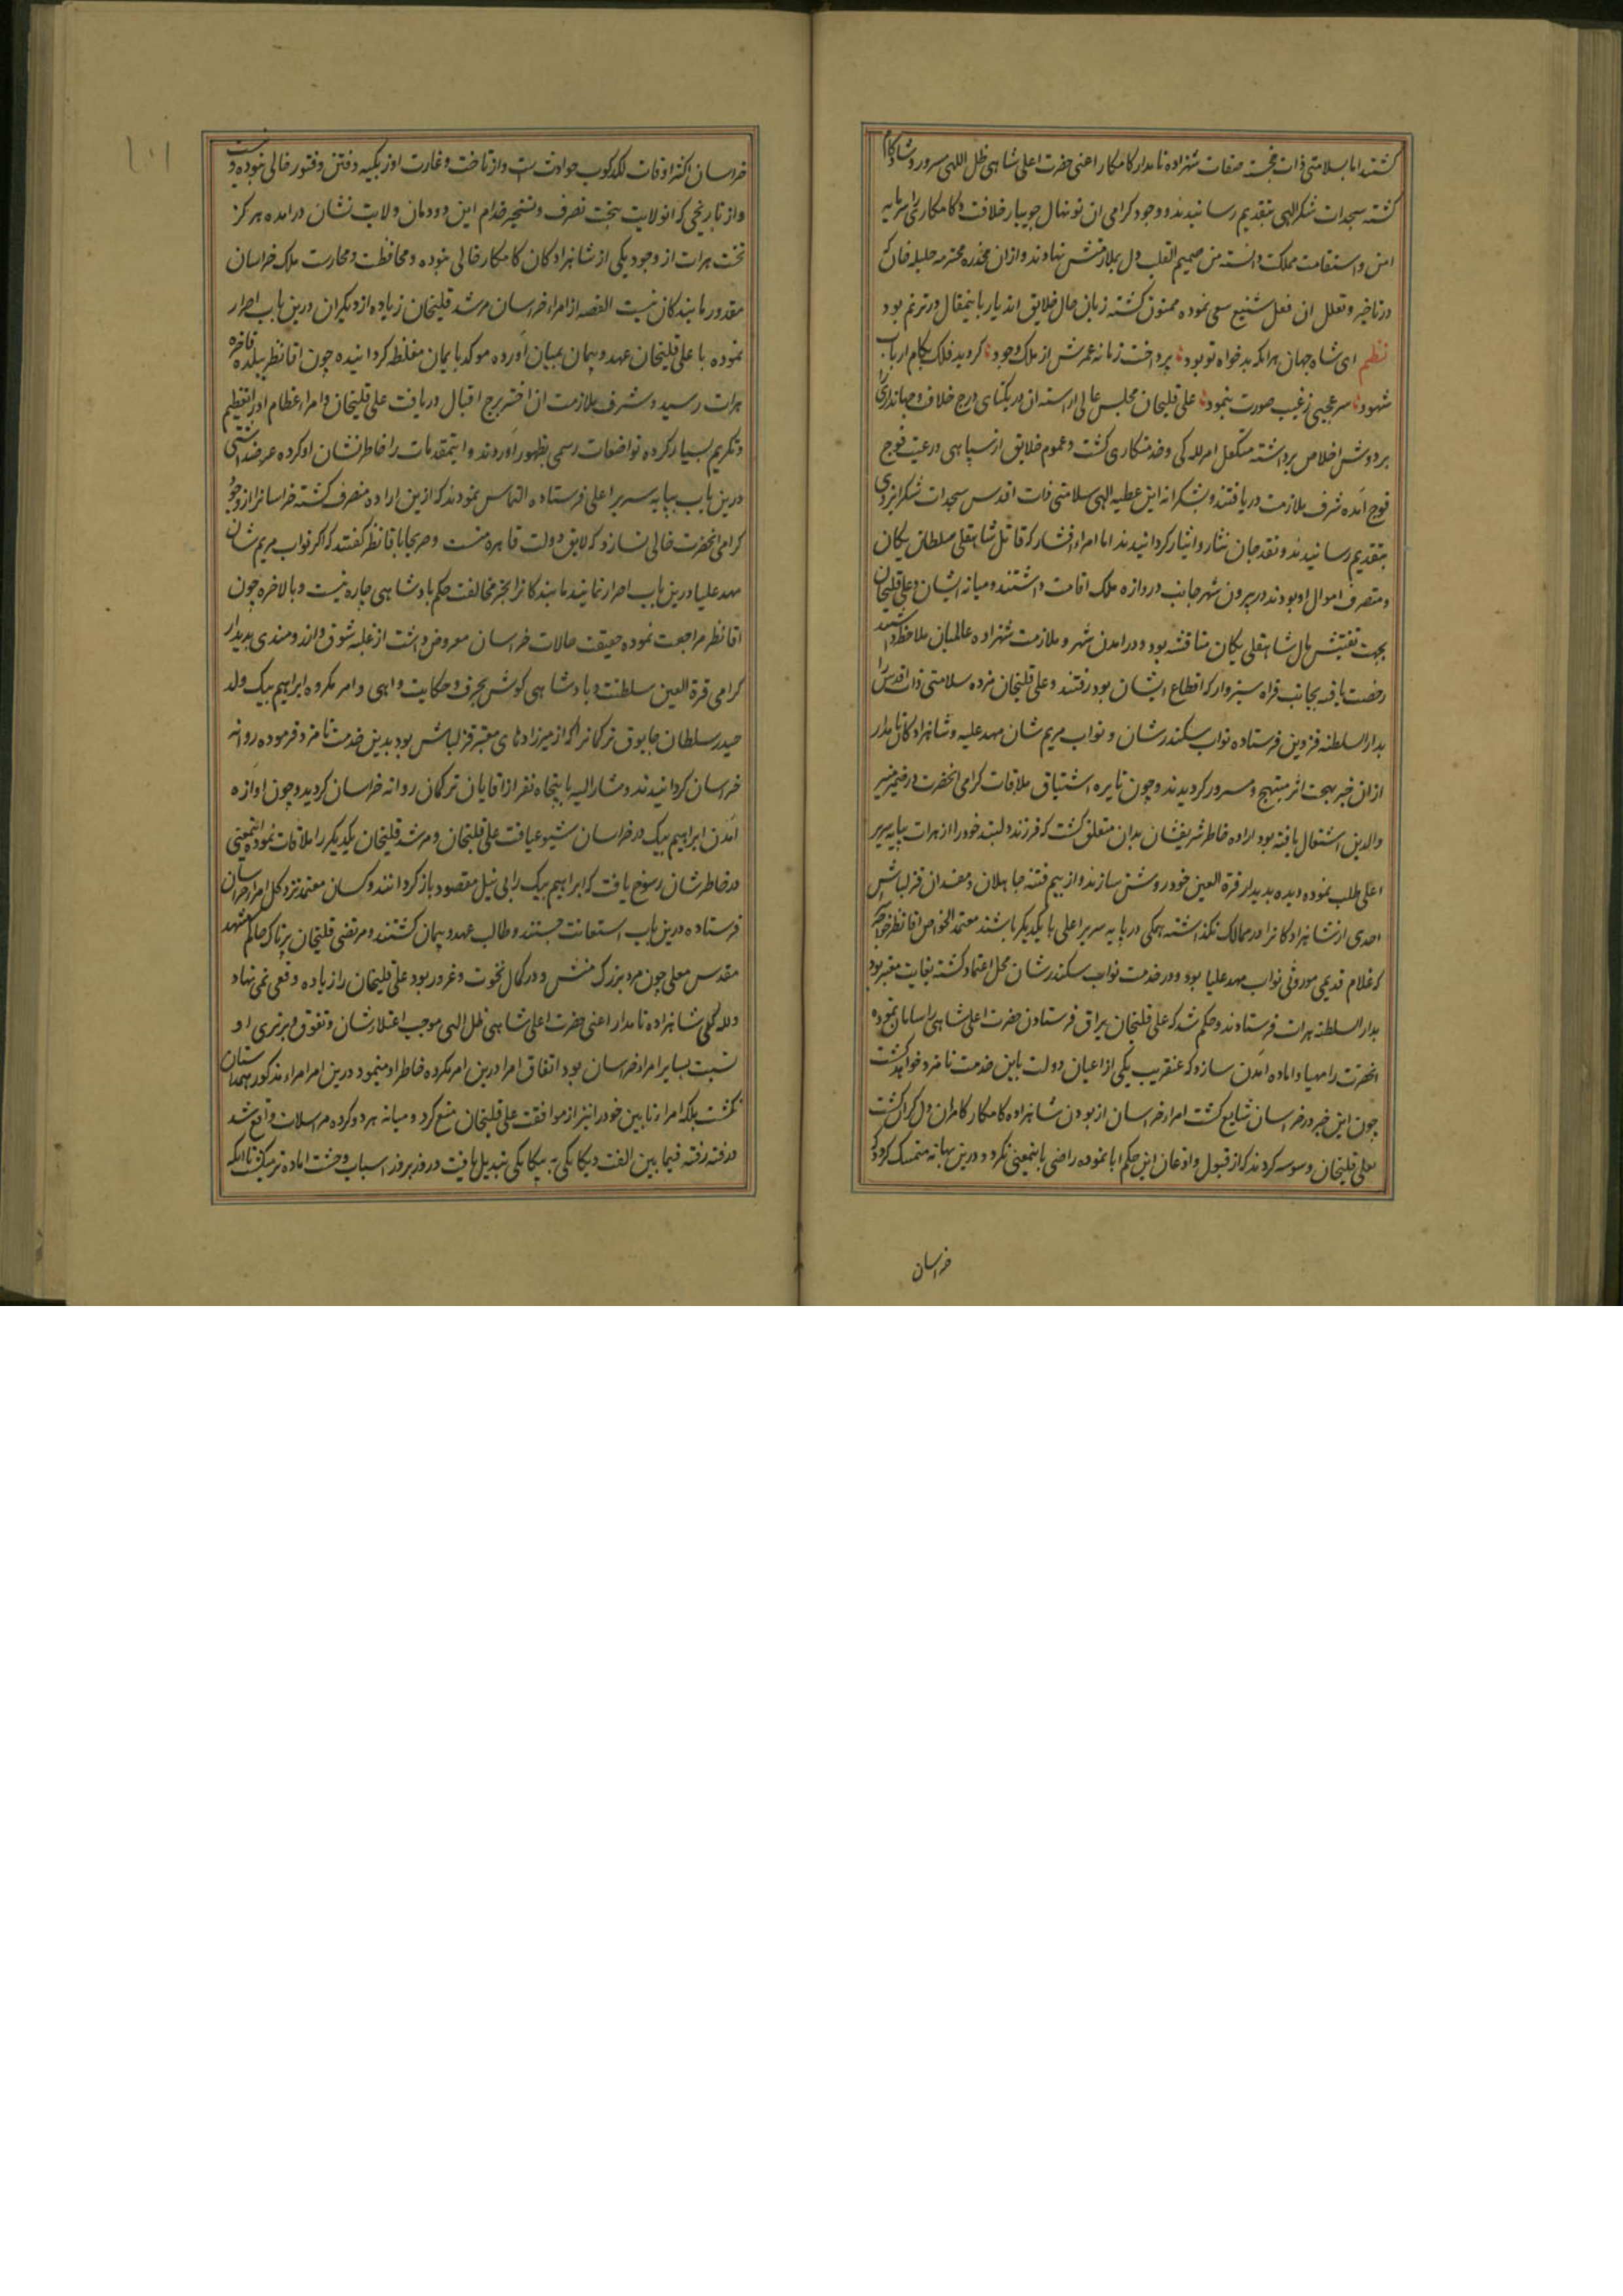 کشتند اما بسلامتی ذات خجسته صفات شهزاده نامدار کامکار اعنی حضرت اعلی شاهی ظل اللهی مسرور و شادکام
کشته سجدات شکر الهی بتقدیم رسانیدند و وجود کرامی ان نونهال جویبار خلافت و کامکاری را سرمایه
امن و استقامت مملکت دانسته من صمیم القلب دل بملازمتش نهادند و ازان مخدره محترمه جلیله خان که
در تاخیر و تعلل ان فعل شنیع سعی نموده ممنون کشته زبان حال خلایق اندیار باینمقال در ترنم بود
نظم ای شاه جهان هرانکه بدخواه تو بود پرداخت زمانه عمرش از ملک وجود کردید فلک بکام ارباب
شهود سر عجبی ز غیب صورت بنمود علی قلیخان مجلس عالی اراسته ان در یکتای درج خلافت و جهانداری را
بر دوش اخلاص برداشته متکفل امر للکی و خدمتکاری کشت و عموم خلایق از سپاهی و رعیت فوج
فوج آمده شرف ملازمت دریافتند و بشکرانه این عطیه الهی سلامتی ذات اقدس سجدات شکر ایزدی
بتقدیم رسانیدند و نقد جان نثار و ایثار کردانیدند اما امراء افشار که قاتل شاهقلی سلطان یکان
و متصرف اموال او بودند در بیرون شهر جانب دروازه ملک اقامت داشتند و میانه ایشان و علی قلیخان
بجهت تفتیش مال شاهقلی یکان مناقشه بود و در امدن شهر و ملازمت شهزاده عالمیان ملاحظه داشتند
رخصت یافته بجانب فراه و سبزوار که اقطاع ایشان بود رفتند و علی قلیخان مژده سلامتی ذات اقدس را
بدار السلطنه قزوین فرستاده نواب سکندرشان و نواب مریم شان مهد علیه و شاهزادکان نامدار
ازان خبر بهجت اثر مبتهج و مسرور کردیدند و چون نایره اشتیاق ملاقات کرامی انحضرت در ضمیر منیر
والدین اشتعال یافته بود اراده خاطر شریفشان بدان متعلق کشت که فرزند دلبند خود را از هرات بپایه سریر
اعلی طلب نموده دیده بدیدار قرة العین خود روشن سازند و از بیم فتنه جاهلان و مفسدان قزلباش
احدی از شاهزادکانرا در ممالک نکذاشته همکی در پایه سریر اعلی با یکدیکر باشند معتمد الخواص اقا نظر خواجه را
که غلام قدیمی موروثی نواب مهد علیا بود و در خدمت نواب سکندرشان محل اعتماد کشته بغایت معتبر بود
بدار السلطنه هرات فرستادند و حکم شد که علی قلیخان یراق فرستادن حضرت اعلی شاهی را سامان نموده
انحضرت را مهیا و اماده آمدن سازد که عنقریب یکی از اعیان دولت باین خدمت نامزد خواهد کشت
چون این خبر در خراسان شایع کشت امراء خراسان از بودن شاهزاده کامکار کامران دل کران کشت
بعلی قلیخان وسوسه کردند که از قبول و اذعان این حکم ابا نموده راضی باینمعنی نکردد و درین بهانه متمسک کردد که
خراسان
خراسان اکثر اوقات لکدکوب حوادث ست و از تاخت و غارت اوزبکیه و فتن و فتور خالی نبوده و نیست
و از تاریخی که انولایت بتحت تصرف و تسخیر خدام این دودمان ولایت نشان درامده هرکز
تخت هرات از وجود یکی از شاهزادکان کامکار خالی نبوده و محافظت و محارست ملک خراسان
مقدور ما بندکان نیست القصه از امراء خراسان مرشد قلیخان زیاده از دیکران درین باب اصرار
نموده با علی قلیخان عهد و پیمان بمیان اورده موکد بایمان مغلظه کردانیده چون اقا نظر ببلده فاخره
هرات رسید و شرف ملازمت ان اختر برج اقبال دریافت علی قلیخان و امراء عظام او را تعظیم
و تکریم بسیار کرده تواضعات رسمی بظهور آوردند و اینمقدمات را خاطرنشان او کرده عرضه داشتی
درین باب بپایه سریر اعلی فرستاده التماس نمودند که ازین اراده منصرف کشته خراسانرا از وجود
کرامی انحضرت خالی نسازد که لایق دولت قاهره نیست و صریحا باقا نظر کفتند که اکر نواب مریم شان
مهد علیا درین باب اصرار نمایند ما بندکانرا بجز مخالفت حکم پادشاهی چاره نیست و بالاخره چون
اقا نظر مراجعت نموده حقیقت حالات خراسان معروض داشت از غلبه شوق و ارزومندی بدیدار
کرامی قرة العین سلطنت و پادشاهی کوش بحرف و حکایت واهی و امر مکروه ابراهیم بیک ولد
حیدر سلطان چابوق ترکمانرا که از میرزادهای معتبر قزلباش بود بدین خدمت نامزد فرموده روانه
خراسان کردانیدند و مشار الیه با پنجاه نفر از اقایان ترکمان روانه خراسان کردید و چون اوازه
آمدن ابراهیم بیک در خراسان شیوع یافت علی قلیخان و مرشد قلیخان یکدیکر را ملاقات نموده اینمعنی
در خاطر شان رسوخ یافت که ابراهیم بیک را بی نیل مقصود باز کردانند و کسان معتمد نزد کل امراء خراسان
فرستاده درین باب استعانت جستند و طالب عهد و پیمان کشتند و مرتضی قلیخان پرناک حاکم مشهد
مقدس معلی چون مرد بزرک منش و در کمال نخوت و غرور بود علی قلیخان را زیاده وقعی نمی نهاد
و للکی شاهزاده نامدار اعنی حضرت اعلی شاهی ظل الهی موجب اعتلاء شان و تفوق و برتری او
نسبت بسایر امراء خراسان بود اتفاق امرا درین امر مکرده خاطر او مینمود درین امر امراء مذکور همداستان
نکشت بلکه امراء تابین خود را نیز از موافقت علی قلیخان منع کرد و میانه هر دو کرده مراسلات واقع شد
و رفته رفته فیما بین الفت و یکانکی به بیکانکی تبدیل یافت و روز بروز اسباب وحشت اماده تر میکشت تا انکه
۱۰۱